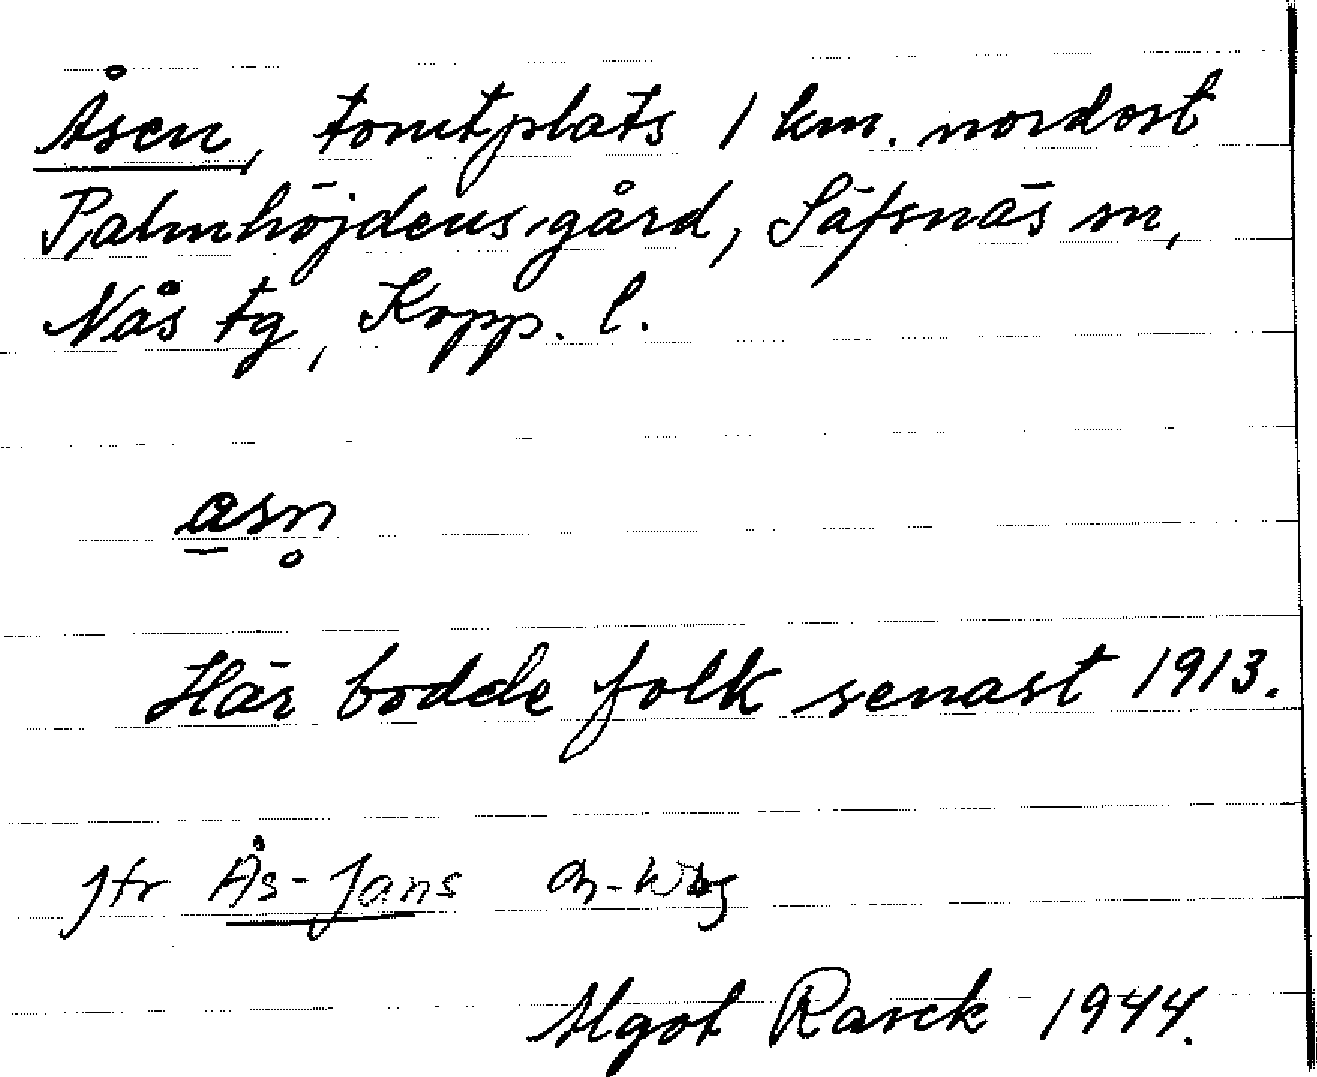 Åsen, tomtplats 1 km. nordost
Palmhöjdens gård, Säfsnäs sn,
Nås tg, Kopp. l.
a̲sn̥
Här bodde folk senast 1913.
Jfr Ås-Jans
Algot Rasck 1944.